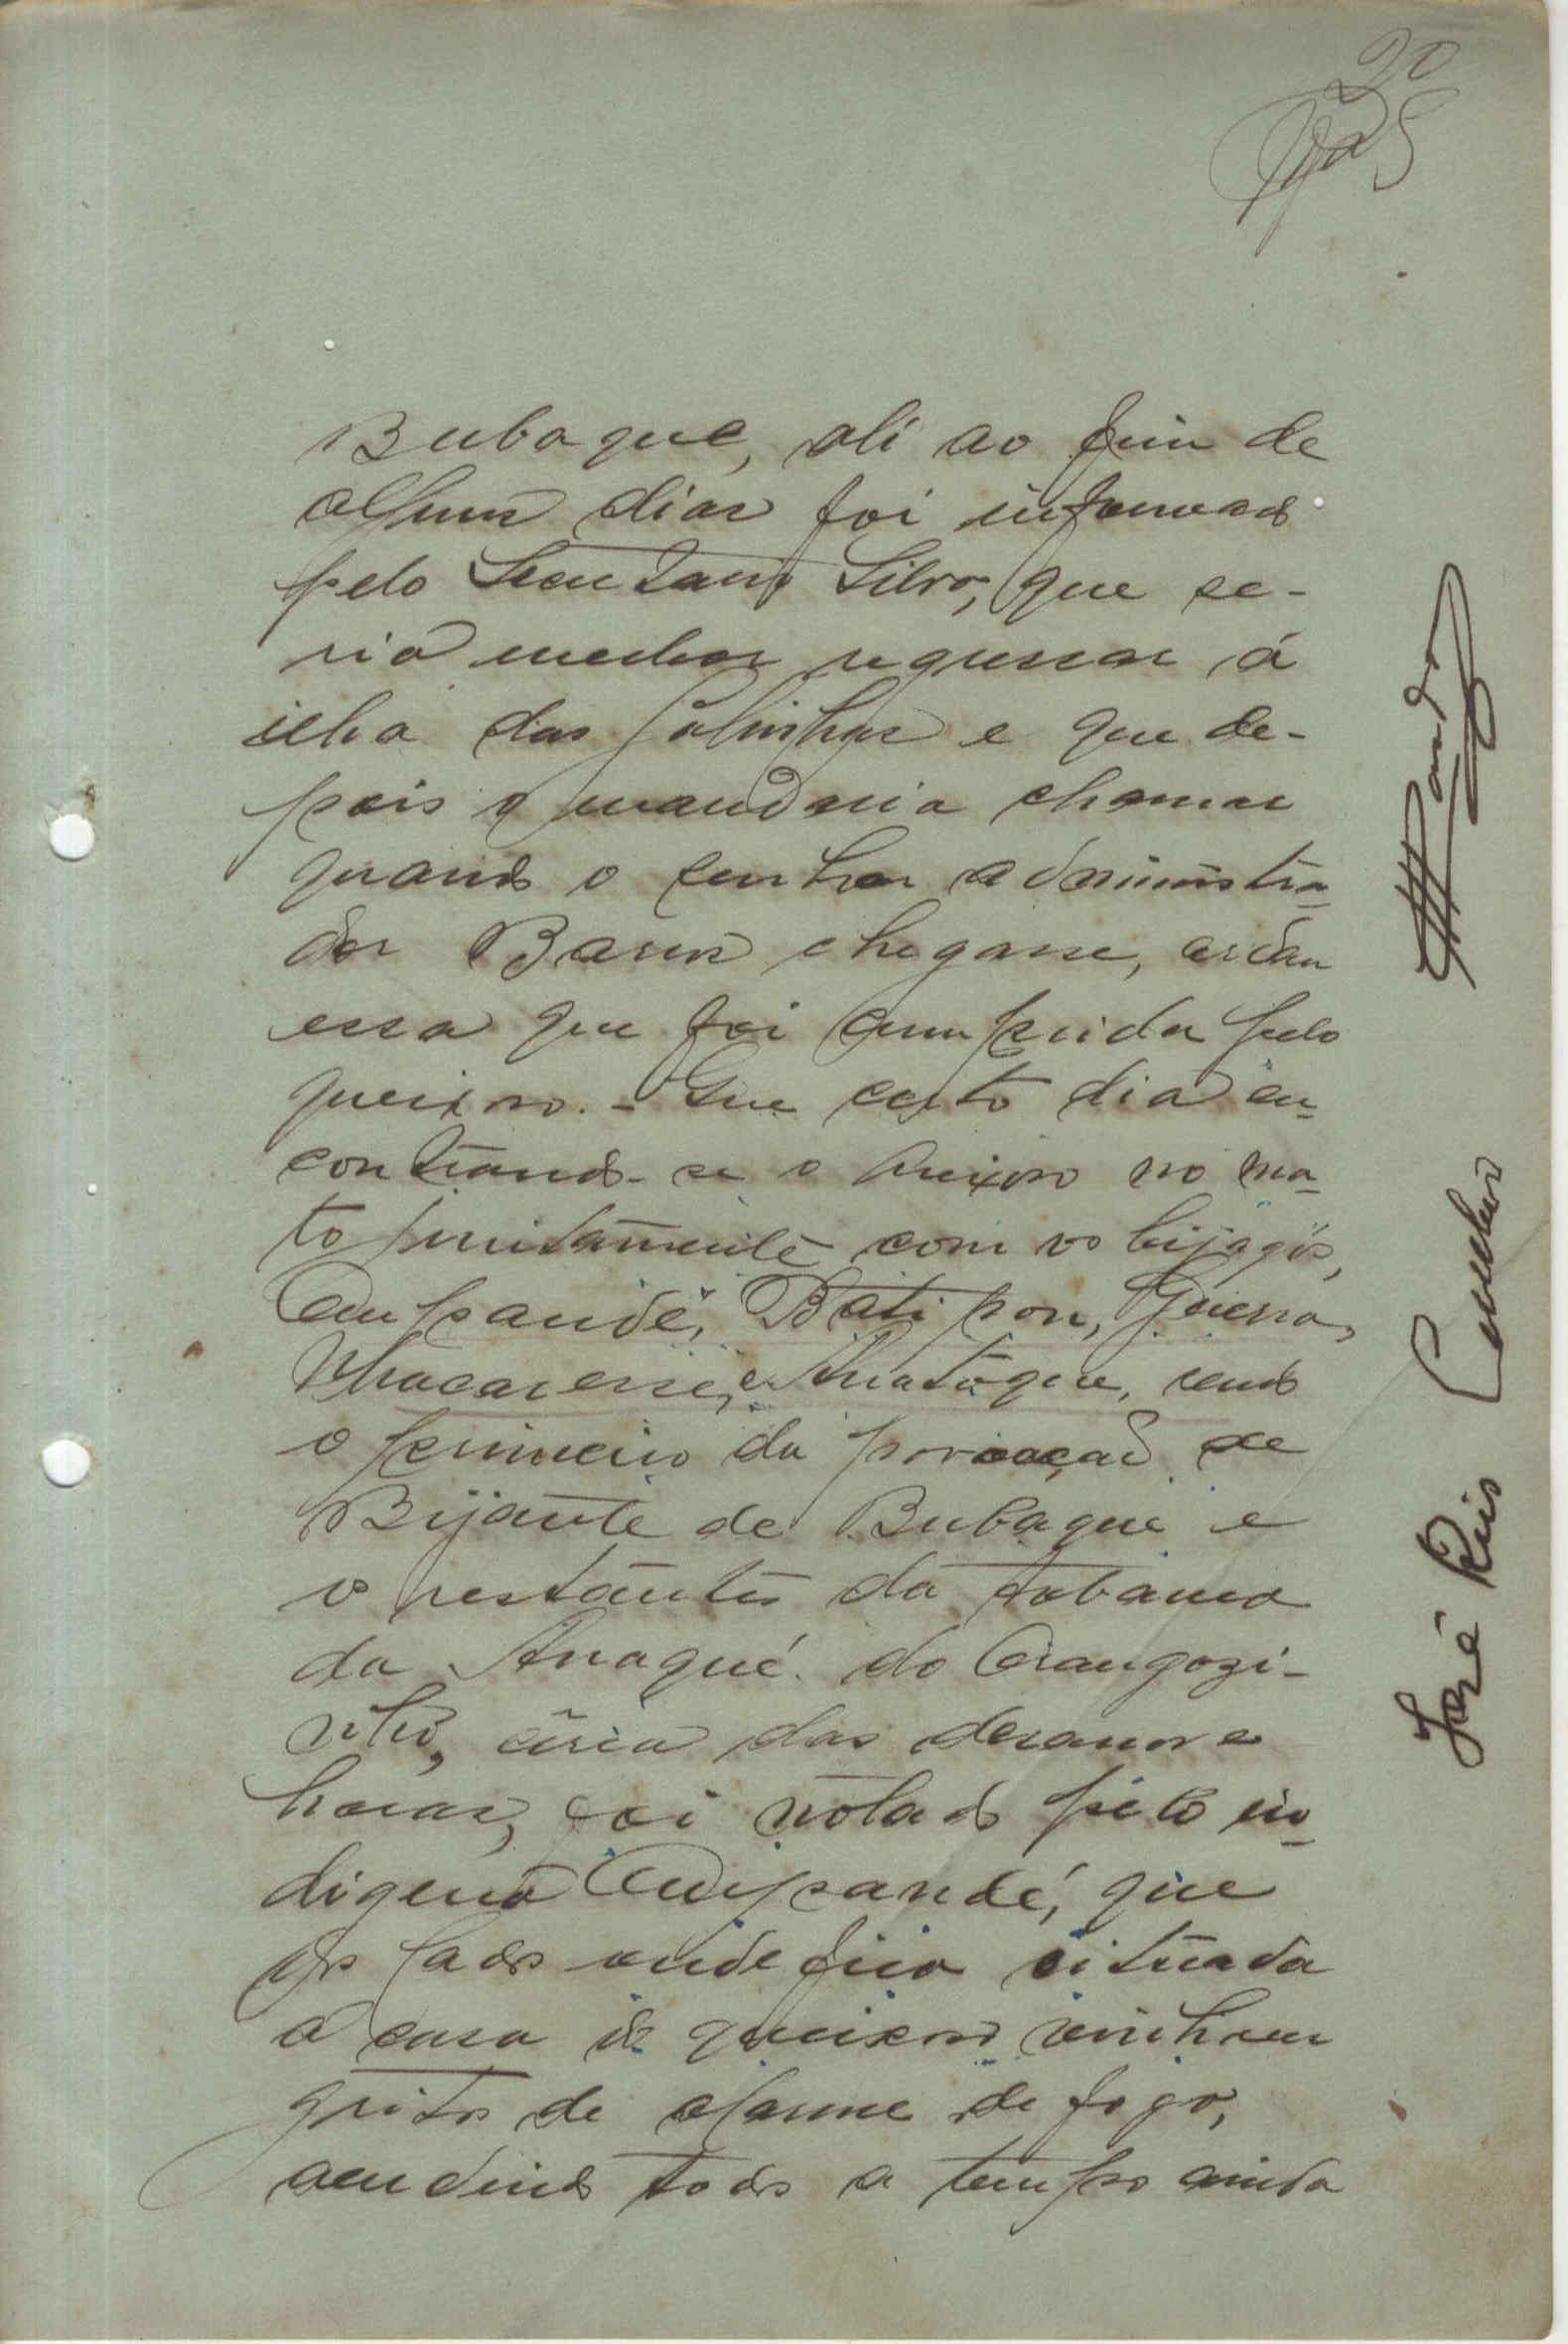 20
Bubaque, ali ao fim de
alguns dias foi informado
pelo Secretario Silva, que se-
ria melhor regressar á
ilha das Galinhas e que de-
pois o mandaria chamar
quando o senhor administra-
dor Barros chegasse, ordem
essa que foi cumprida pelo
queixoso. - Que certo dia en-
contrando-se o queixoso no ma-
to juntamente com os bijagós,
Campandé, Batipon, Guerra,
e sendo
o primeiro da povoação de
Bijante de Bubaque e
o restantes da tabanca
da Anaqué do Orangozi-
nho, cêrca das dezanove
horas, foi notado pelo in-
digena Campandé, que
dos lados onde fica situada
a casa do queixoso vinham
gritos de alarme de fogo,
acudindo todos a tempo ainda
José Reis